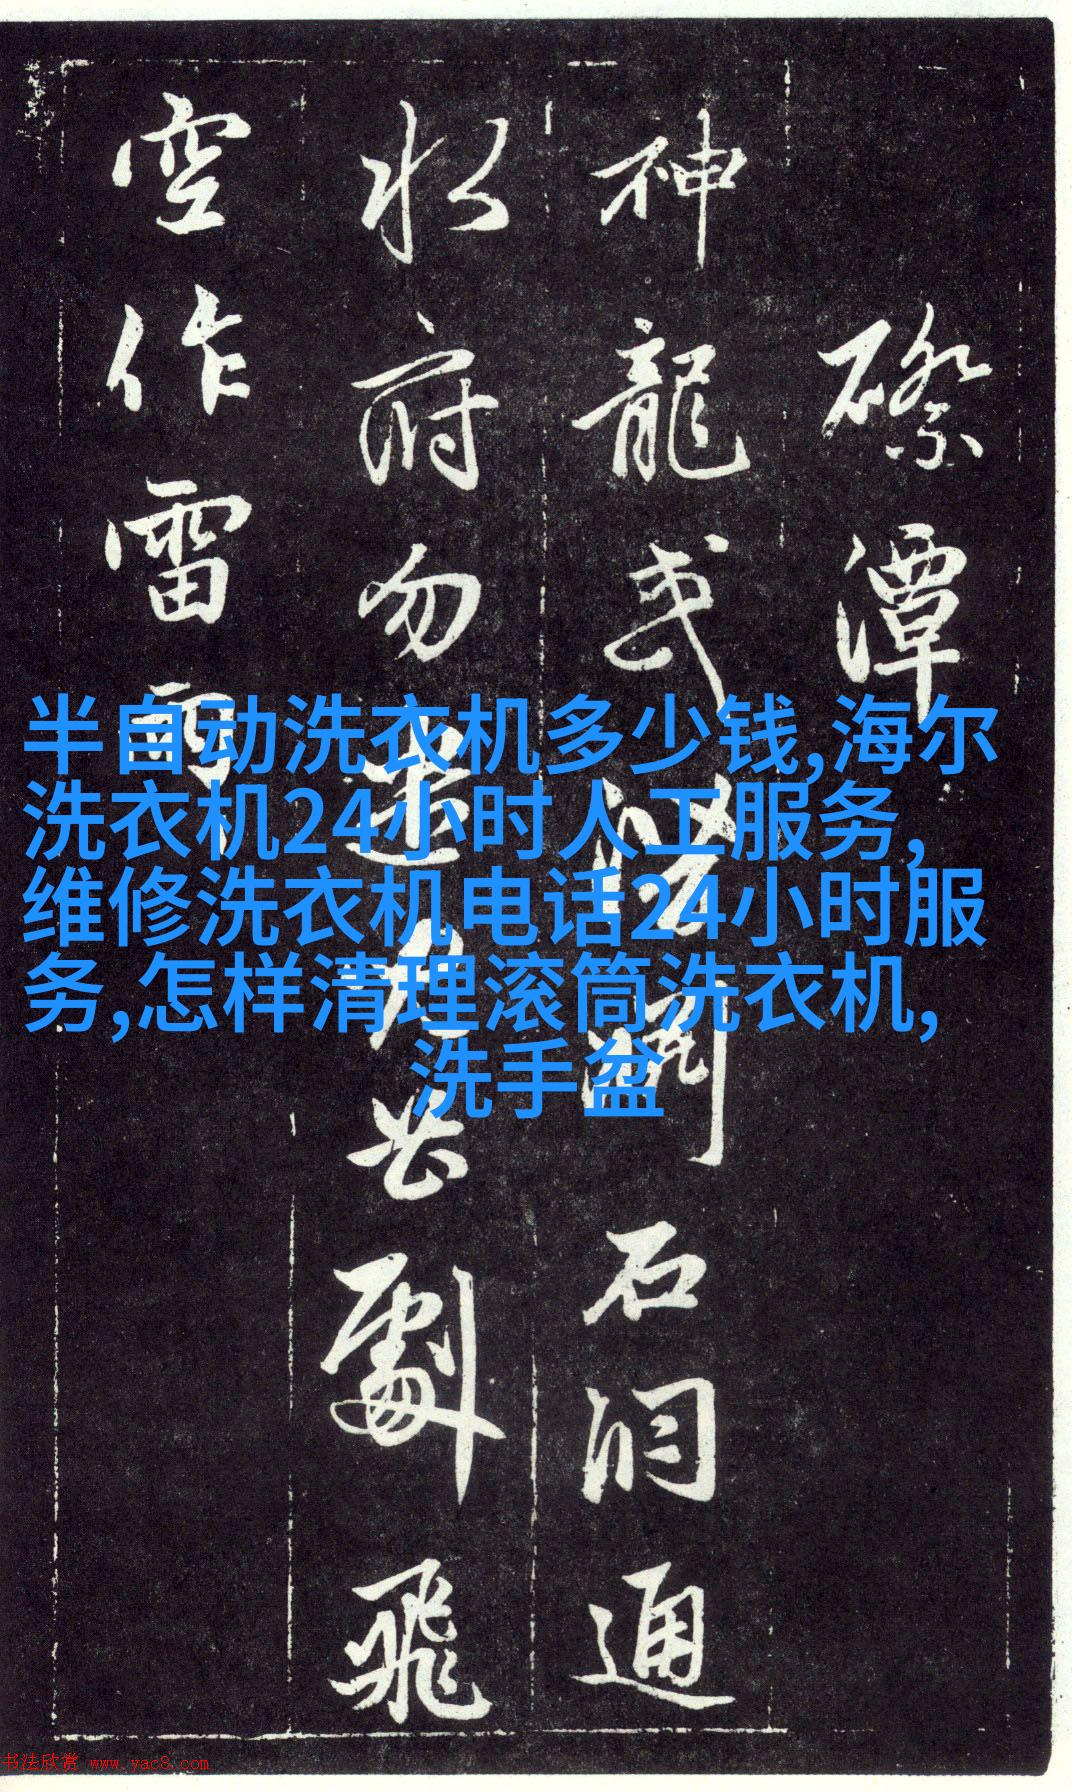 磜潭
神龍或石洞通
水府勿劇飛
空作雷雨
半自动洗衣机多少钱,海尔
洗衣机24小时人工服务,
维修洗衣机电话24小时服
务,怎样清理滚筒洗衣机,
洗手盆
书法欣赏 www.yac8.com